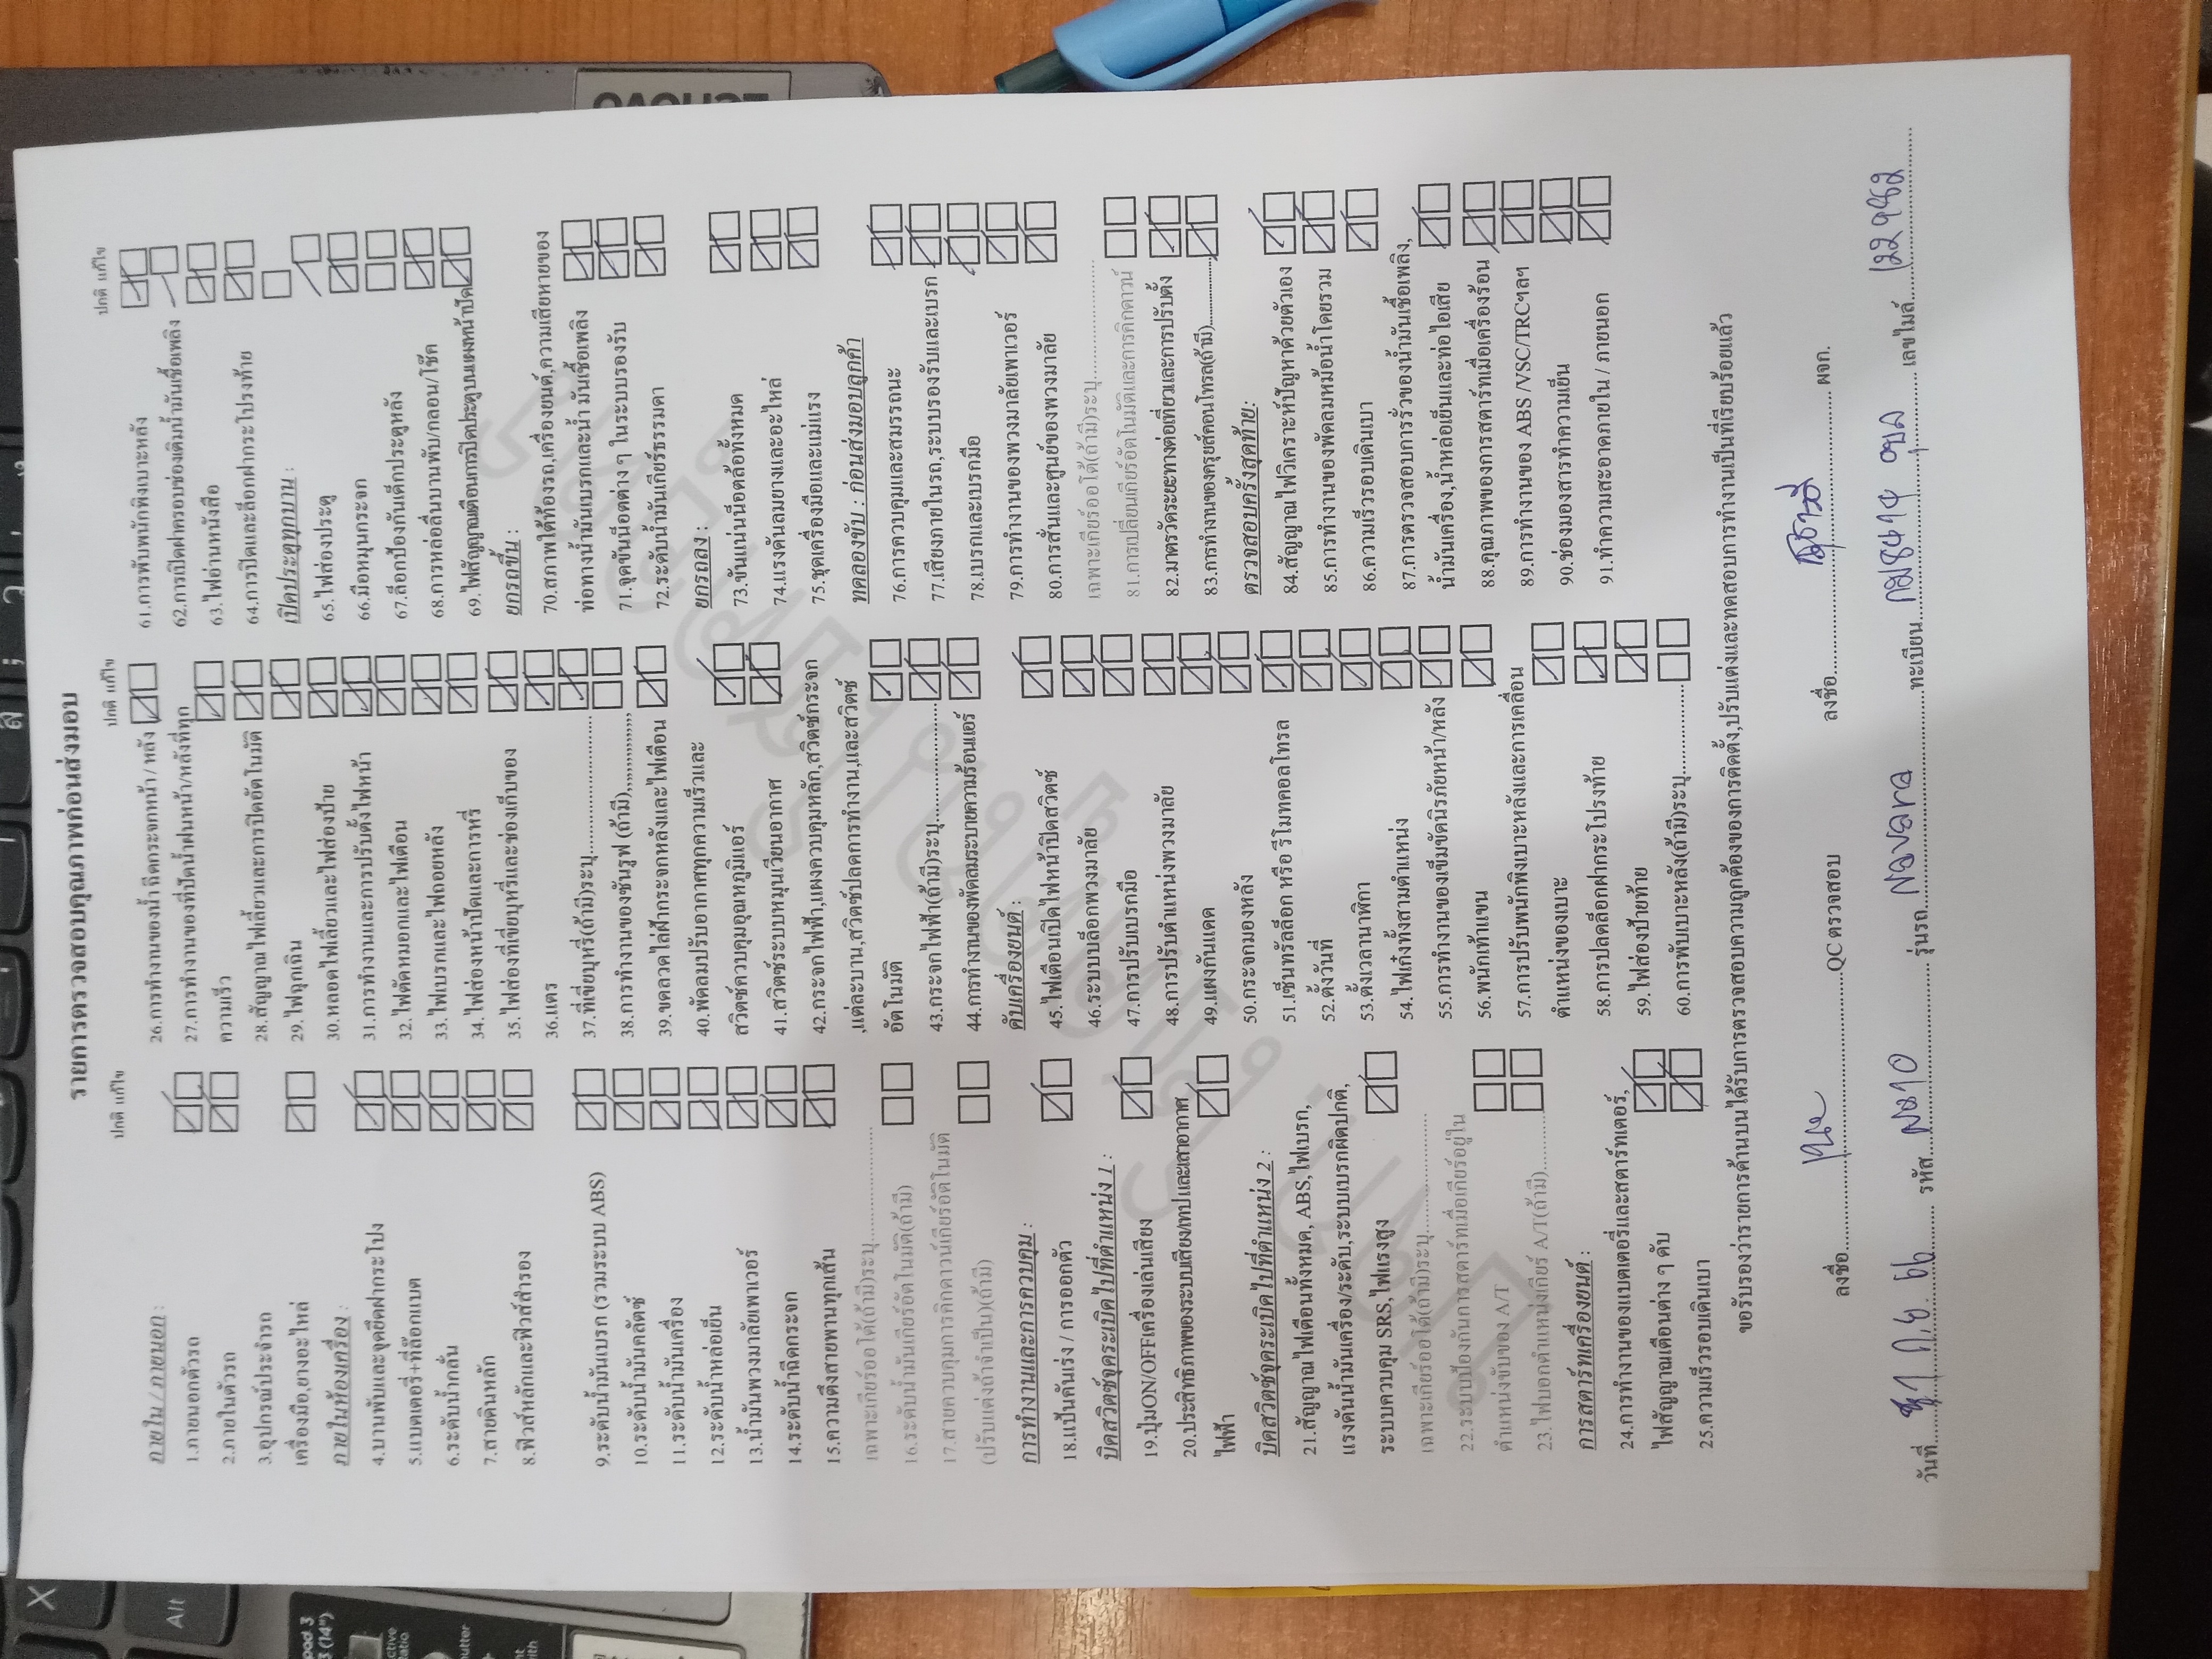 รายการตรวจสอบคุณภาพก่อนส่งมอบ
ปกติ แก้ไข
ภายใน / ภายนอก:
1.ภายนอกตัวรถ
2.ภายในตัวรถ
3.อุปกรณ์ประจำรถ
เครื่องมือ,ยางอะไหล่
ภายในห้องเครื่อง :
4.บานพับและจุดยึดฝากระโปง
5.แบตเตอรี่+ที่ล๊อกแบต
6.ระดับน้ำกลั่น
7.สายดินหลัก
8.ฟิวส์หลักและฟิวส์สำรอง
9.ระดับน้ำมันเบรก (รวมระบบ ABS)
10.ระดับน้ำมันคลัตซ์
11.ระดับน้ำมันเครื่อง
12.ระดับน้ำหล่อเย็น
13.น้ำมันพวงมาลัยเพาเวอร์
14.ระดับน้ำฉีดกระจก
15.ความตึงสายพานทุกเส้น
เฉพาะเกียร์ออโต้(ถ้ามี)ระบุ..............
16.ระดับน้ำมันเกียร์อัตโนมัติ(ถ้ามี)
17.สายควบคุมการคิกดาวน์เกียร์อัตโนมัติ
(ปรับแต่งถ้าจำเป็น)(ถ้ามี)
การทำงานและการควบคุม :
18.แป้นคันเร่ง / การออกตัว
บิดสวิตซ์จุดระเบิดไปที่ตำแหน่ง 1 :
19.ปุ่มON/OFFเครื่องเล่นเสียง
20.ประสิทธิภาพของระบบเสียง/เทป และเสาอากาศ
ไฟฟ้า
บิดสวิตซ์จุดระเบิดไปที่ตำแหน่ง 2 :
21.สัญญาณ ไฟเตือนทั้งหมด, ABS,ไฟเบรก,
แรงดันน้ำมันเครื่อง/ระดับ,ระบบเบรกผิดปกติ,
ระบบควบคุม SRS,ไฟแรงสูง
เฉพาะเกียร์ออโต้(ถ้ามี)ระบุ..............
22.ระบบป้องกันการสตาร์ทเมื่อเกียร์อยู่ใน
ตำแหน่งขับของ A/T
23.ไฟบอกตำแหน่งเกียร์ A/T(ถ้ามี)..............
การสตาร์ทเครื่องยนต์ :
24.การทำงานของแบตเตอรี่และสตาร์ทเตอร์,
ไฟสัญญาณเตือนต่าง ๆ ดับ
25.ความเร็วรอบเดินเบา
ปกติ แก้ไข
26.การทำงานของน้ำ ฉีดกระจกหน้า / หลัง
27.การทำงานของที่ปัดน้ำฝนหน้า/หลังที่ทุก
ความเร็ว
28.สัญญาณไฟเลี้ยวและการปิดอัตโนมัติ
29.ไฟฉุกเฉิน
30.หลอดไฟเลี้ยวและไฟส่องป้าย
31.การทำงานและการปรับตั้งไฟหน้า
32.ไฟตัดหมอกและไฟเตือน
33.ไฟเบรกและไฟถอยหลัง
34.ไฟส่องหน้าปัดและการหรี่
35.ไฟส่องที่เขี่ยบุหรี่และช่องเก็บของ
36.แตร
37.ที่เขี่ยบุหรี่(ถ้ามี)ระบุ..............
38.การทำงานของซันรูฟ (ถ้ามี),,,,,,,,,,,,,,
39.ขดลวดไล่ฝ้ากระจกหลังและไฟเตือน
40.พัดลมปรับอากาศทุกความเร็วและ
สวิตซ์ควบคุมอุณหภูมิแอร์
41.สวิตซ์ระบบหมุนเวียนอากาศ
42.กระจกไฟฟ้า,แผงควบคุมหลัก,สวิตซ์กระจก
,แต่ละบาน,สวิตซ์ปลดการทำงาน,และสวิตซ์
อัตโนมัติ
43.กระจกไฟฟ้า(ถ้ามี)ระบุ..............
44.การทำงานของพัดลมระบายความร้อนแอร์
ดับเครื่องยนต์ :
45.ไฟเตือนเปิดไฟหน้าปิดสวิตซ์
46.ระบบบล็อกพวงมาลัย
47.การปรับเบรกมือ
48.การปรับตำแหน่งพวงมาลัย
49.แผงกันแดด
50.กระจกมองหลัง
51.เซ็นทรัลล็อก หรือ รีโมทคอลโทรล
52.ตั้งวันที่
53.ตั้งเวลานาฬิกา
54.ไฟเก๋งทั้งสามตำแหน่ง
55.การทำงานของเข็มขัดนิรภัยหน้า/หลัง
56.พนักเท้าแขน
57.การปรับพนักพิงเบาะหลังและการเคลื่อน
ตำแหน่งของเบาะ
58.การปลดล็อกฝากระโปรงท้าย
59.ไฟส่องป้ายท้าย
60.การพับเบาะหลัง(ถ้ามี)ระบุ..............
ปกติ แก้ไข
61.การพับพนักพิงเบาะหลัง
62.การเปิดฝาครอบช่องเติมน้ำมันเชื้อเพลิง
63.ไฟอ่านหนังสือ
64.การปิดและล็อกฝากระโปรงท้าย
เปิดประตูทุกบาน :
65.ไฟส่องประตู
66.มือหมุนกระจก
67.ล็อกป้องกันเด็กประตูหลัง
68.การหล่อลื่นบานพับ/กลอน/โช๊ค
69.ไฟสัญญาณเตือนการปิดประตูบนแผงหน้าปัด
ยกรถขึ้น :
70.สภาพใต้ท้องรถ,เครื่องยนต์,ความเสียหายของ
ท่อทางน้ำมันเบรกและน้ำ มันเชื้อเพลิง
71.จุดขันน็อตต่าง ๆ ในระบบรองรับ
72.ระดับน้ำมันเกียร์ธรรมดา
ยกรถลง :
73.ขันแน่นน็อตล้อทั้งหมด
74.แรงดันลมยางและอะไหล่
75.ชุดเครื่องมือและแม่แรง
ทดลองขับ : ก่อนส่งมอบลูกค้า
76.การควบคุมและสมรรถนะ
77.เสียงภายในรถ,ระบบรองรับและเบรก
78.เบรกและเบรกมือ
79.การทำงานของพวงมาลัยเพาเวอร์
80.การสั่นและศูนย์ของพวงมาลัย
เฉพาะเกียร์ออโต้(ถ้ามี)ระบุ..............
81.การเปลี่ยนเกียร์อัตโนมัติและการคิกดาวน์
82.มาตรวัดระยะทางต่อเที่ยวและการปรับตั้ง
83.การทำงานของครุยส์คอนโทรล(ถ้ามี)..............
ตรวจสอบครั้งสุดท้าย:
84.สัญญาณไฟวิเคราะห์ปัญหาด้วยตัวเอง
85.การทำงานของพัดลมหม้อน้ำโดยรวม
86.ความเร็วรอบเดินเบา
87.การตรวจสอบการรั่วของน้ำมันเชื้อเพลิง,
น้ำมันเครื่อง,น้ำหล่อเย็นและท่อไอเสีย
88.คุณภาพของการสตาร์ทเมื่อเครื่องร้อน
89.การทำงานของ ABS /VSC/TRCฯลฯ
90.ช่องมองสารทำความเย็น
91.ทำความสะอาดภายใน / ภายนอก
ขอรับรองว่ารายการด้านบนได้รับการตรวจสอบความถูกต้องของการติดตั้ง,ปรับแต่งและทดสอบการทำงานเป็นที่เรียบร้อยแล้ว
ลงชื่อ..............QC ตรวจสอบ ลงชื่อ.............. ผจก.
วันที่.............. รหัส.............. รุ่นรถ.. Navara ..ทะเบียน.............. เลขไมล์.. 122962